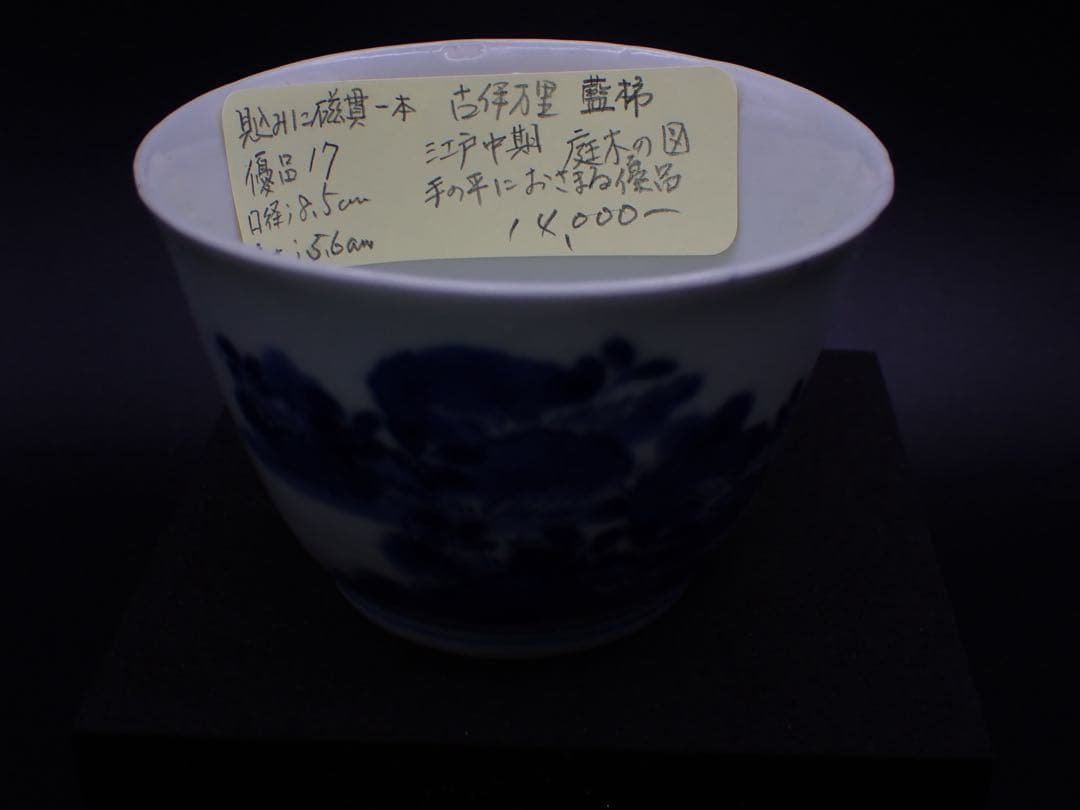 見込みに磁貫一本
優品17
口径;8.5cm
;5.6cm
古伊万里 藍柿
江戸中期 庭木の図
手の平におさまる優品
14,000ー